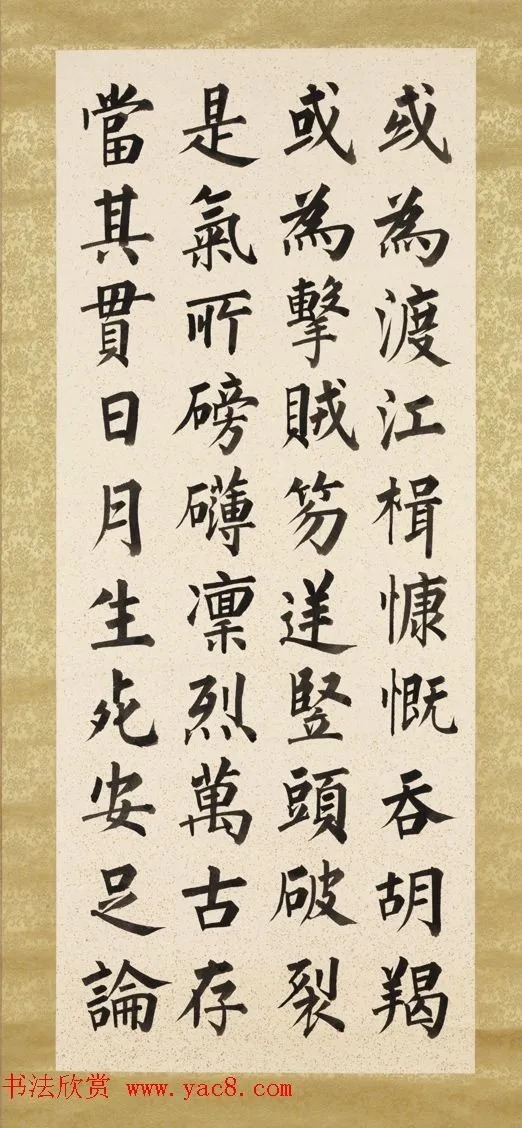 或為渡江楫慷慨吞胡羯
或為擊賊笏逆豎頭破裂
是氣所磅礴凛烈萬古存
當其貫日月生死安足論
书法欣赏 www.yac8.com